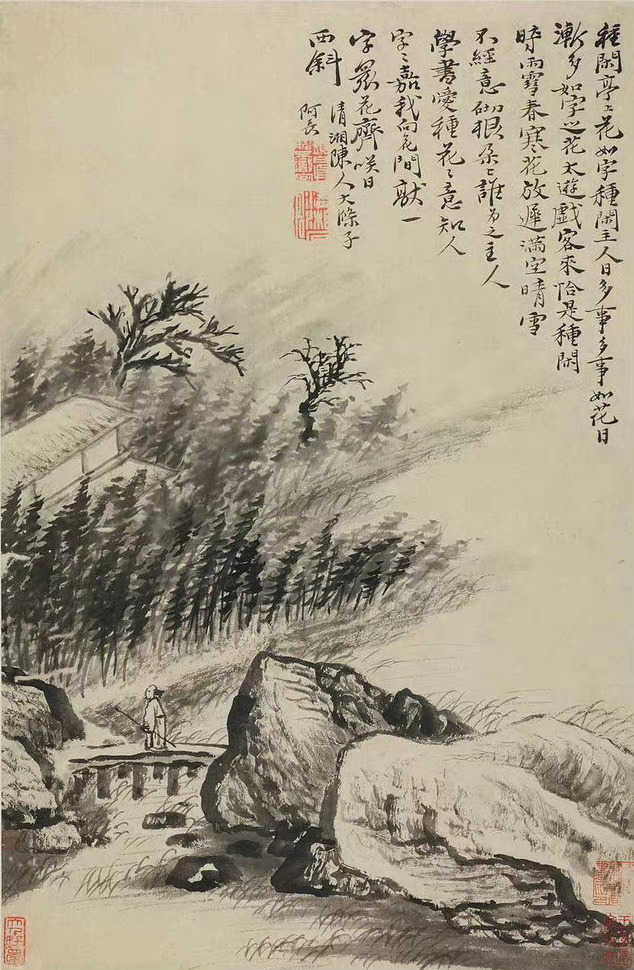 種閑亭上花如字種閑主人日多事多事如花日
漸多如字之花太遊戲客來恰是種閑
時雨雪春寒花放遲滿空晴雪
不經意砌根朵々誰為之主人
學書愛種花々意知人
字々嘉我向花間獻一
字眾花齊咲日
西斜
清湘陳人大滌子
阿長